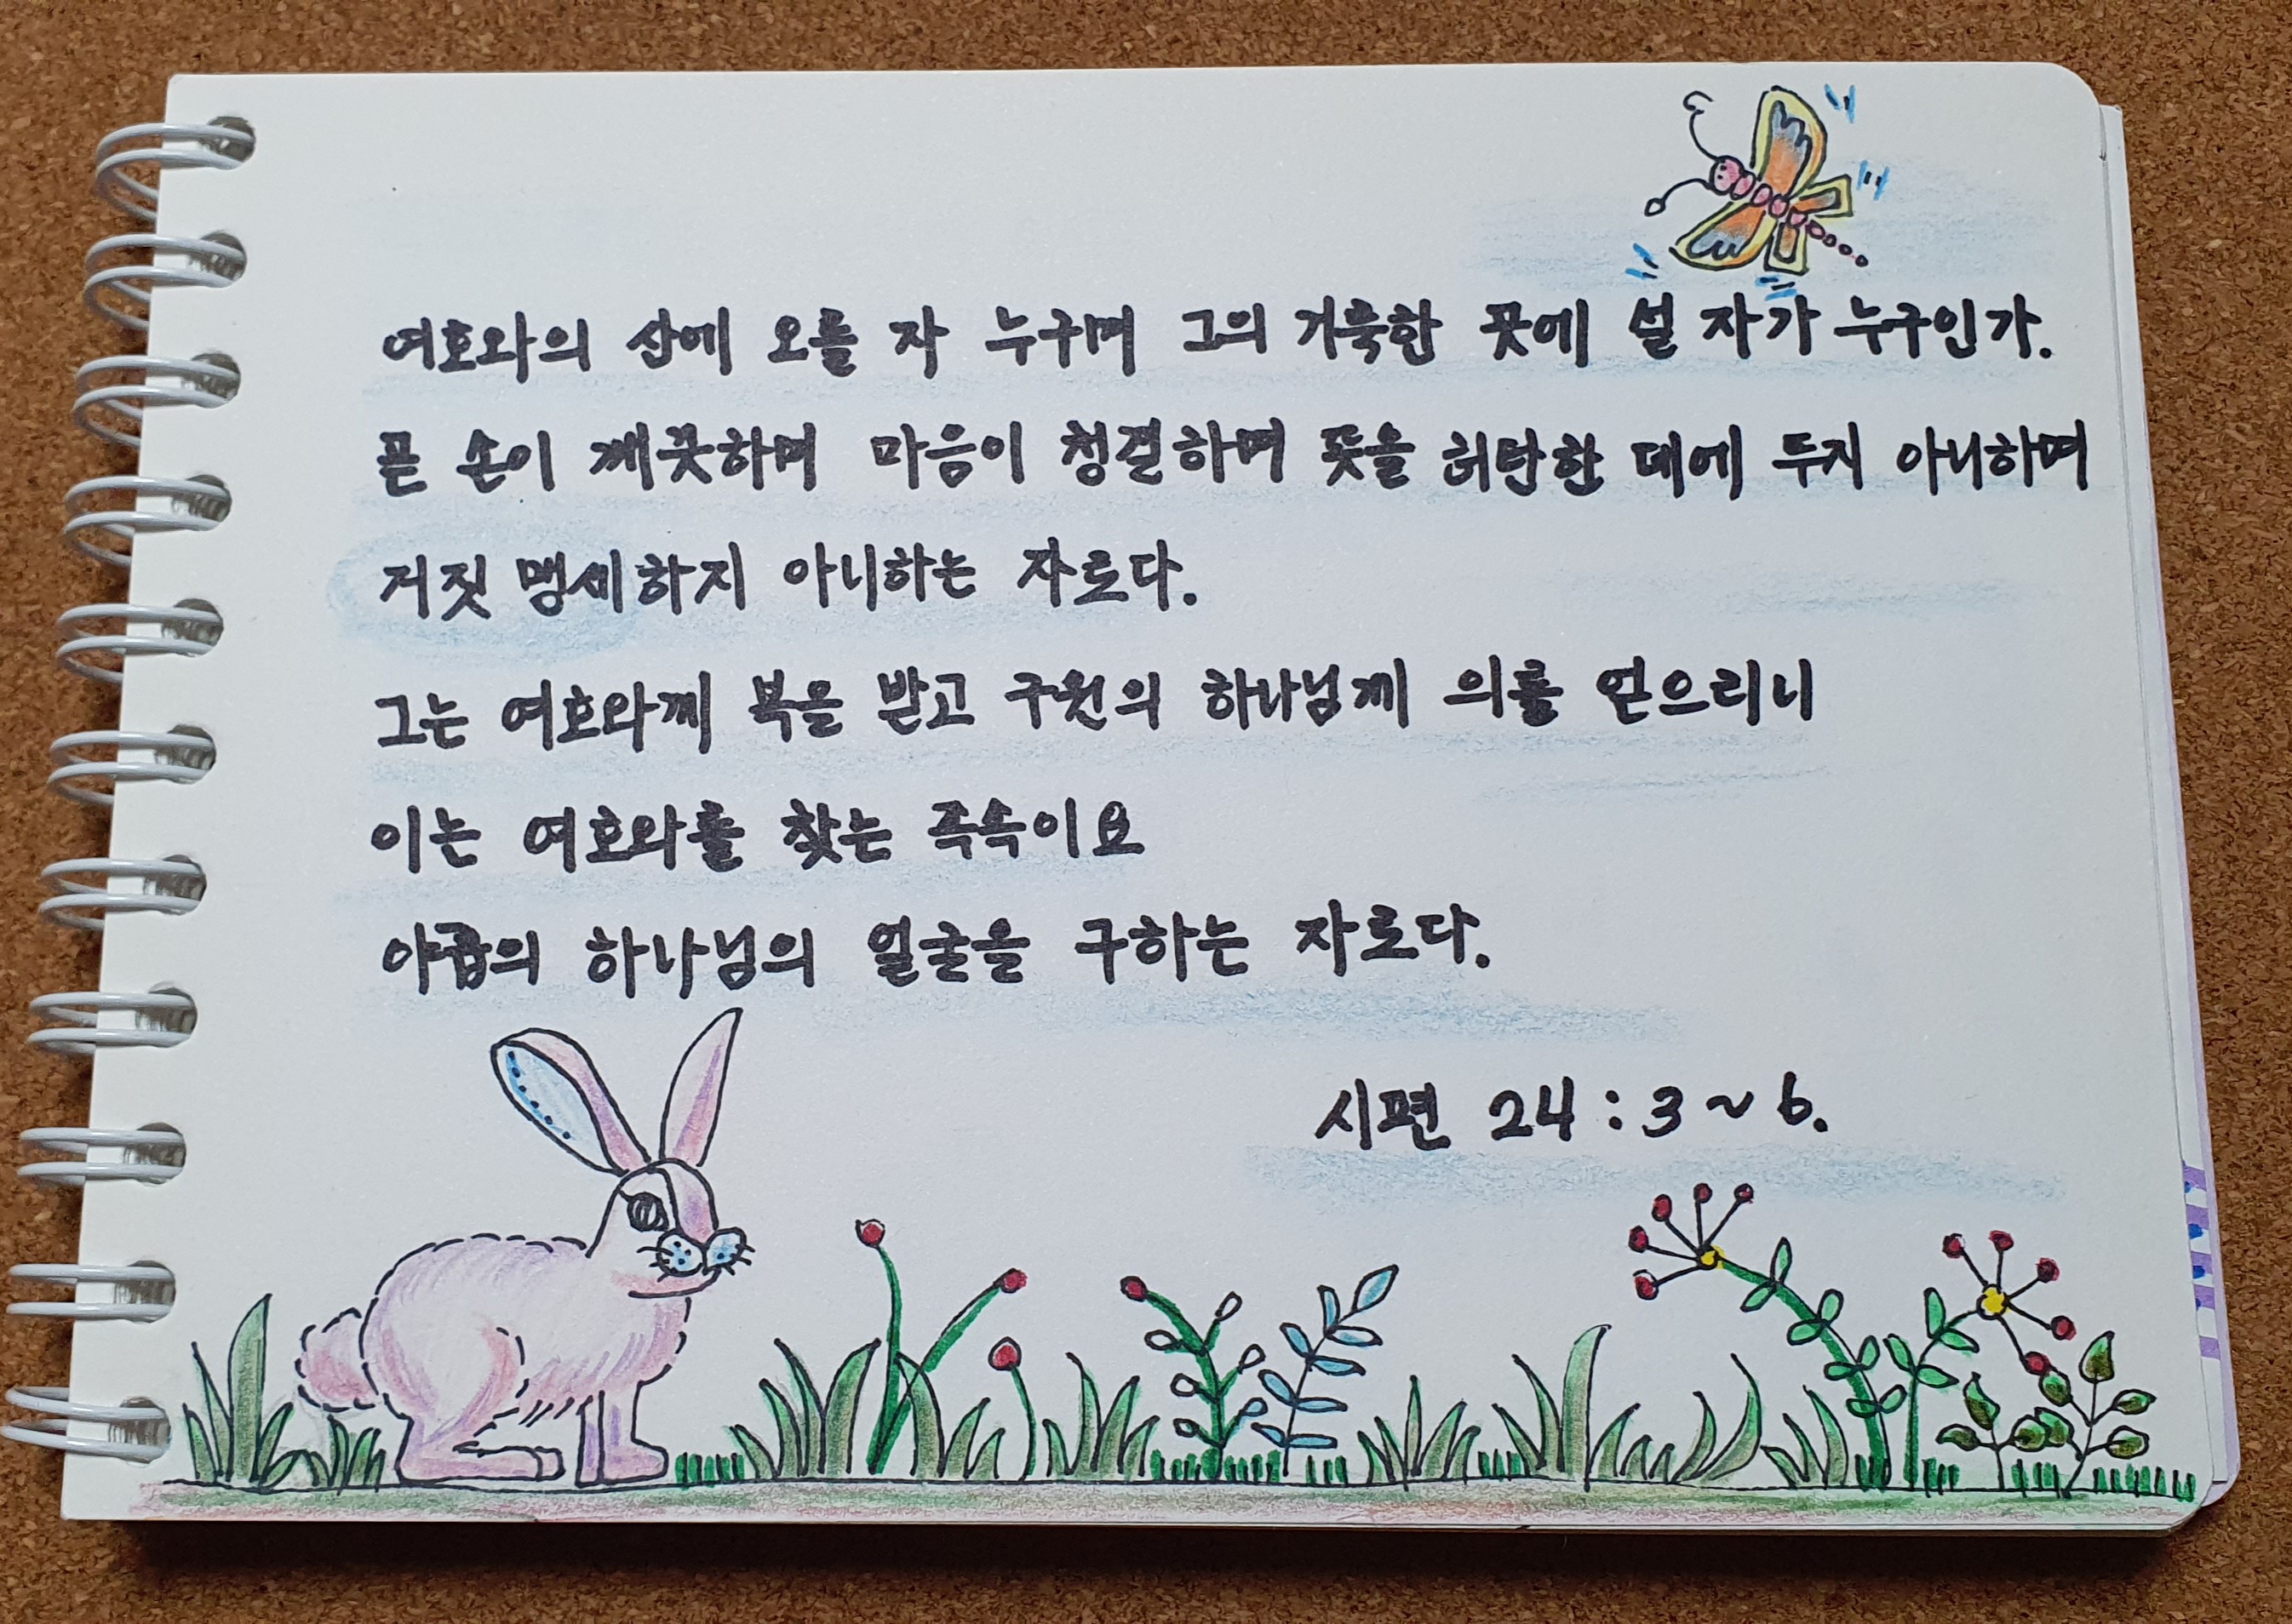 여호와의 산에 오를 자 누구며 그의 거룩한 곳에 설 자가 누구인가.
곧 손이 깨끗하며 마음이 청결하며 뜻을 허탄한 데에 두지 아니하며
거짓 맹세하지 아니하는 자로다.
그는 여호와께 복을 받고 구원의 하나님께 의를 얻으리니
이는 여호와를 찾는 족속이요
야곱의 하나님의 얼굴을 구하는 자로다.
시편 24 : 3 ~ 6.